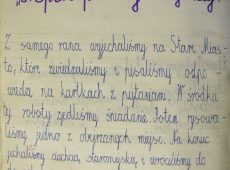 Z samego rana wyjechaliśmy na Stare Mias-
to, które zwiedzaliśmy i pisaliśmy odpo
wiedzi na kartkach z pytaniami. W środku
tej roboty zjedliśmy śniadanie. Potem rysowa
liśmy jedno z obejrzanych miejsc. Na koniec
jechaliśmy ciuchcią staromiejską, i wróciliśmy do